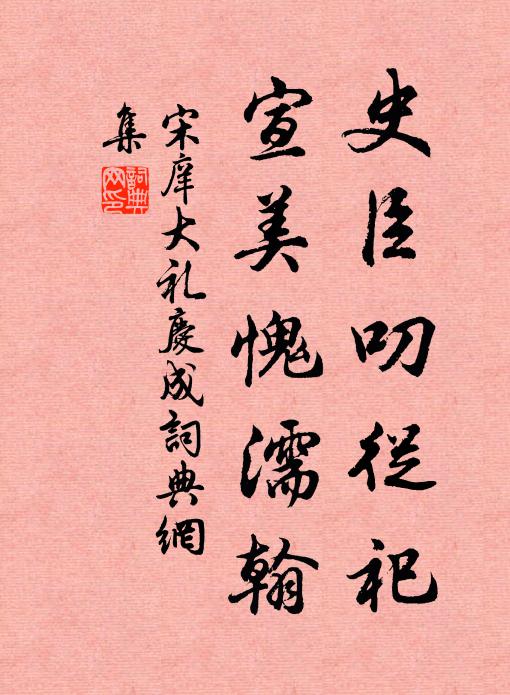 史臣叨從祀
宣美愧濡翰
宋庠大礼慶成詞典網
集
詞典網印